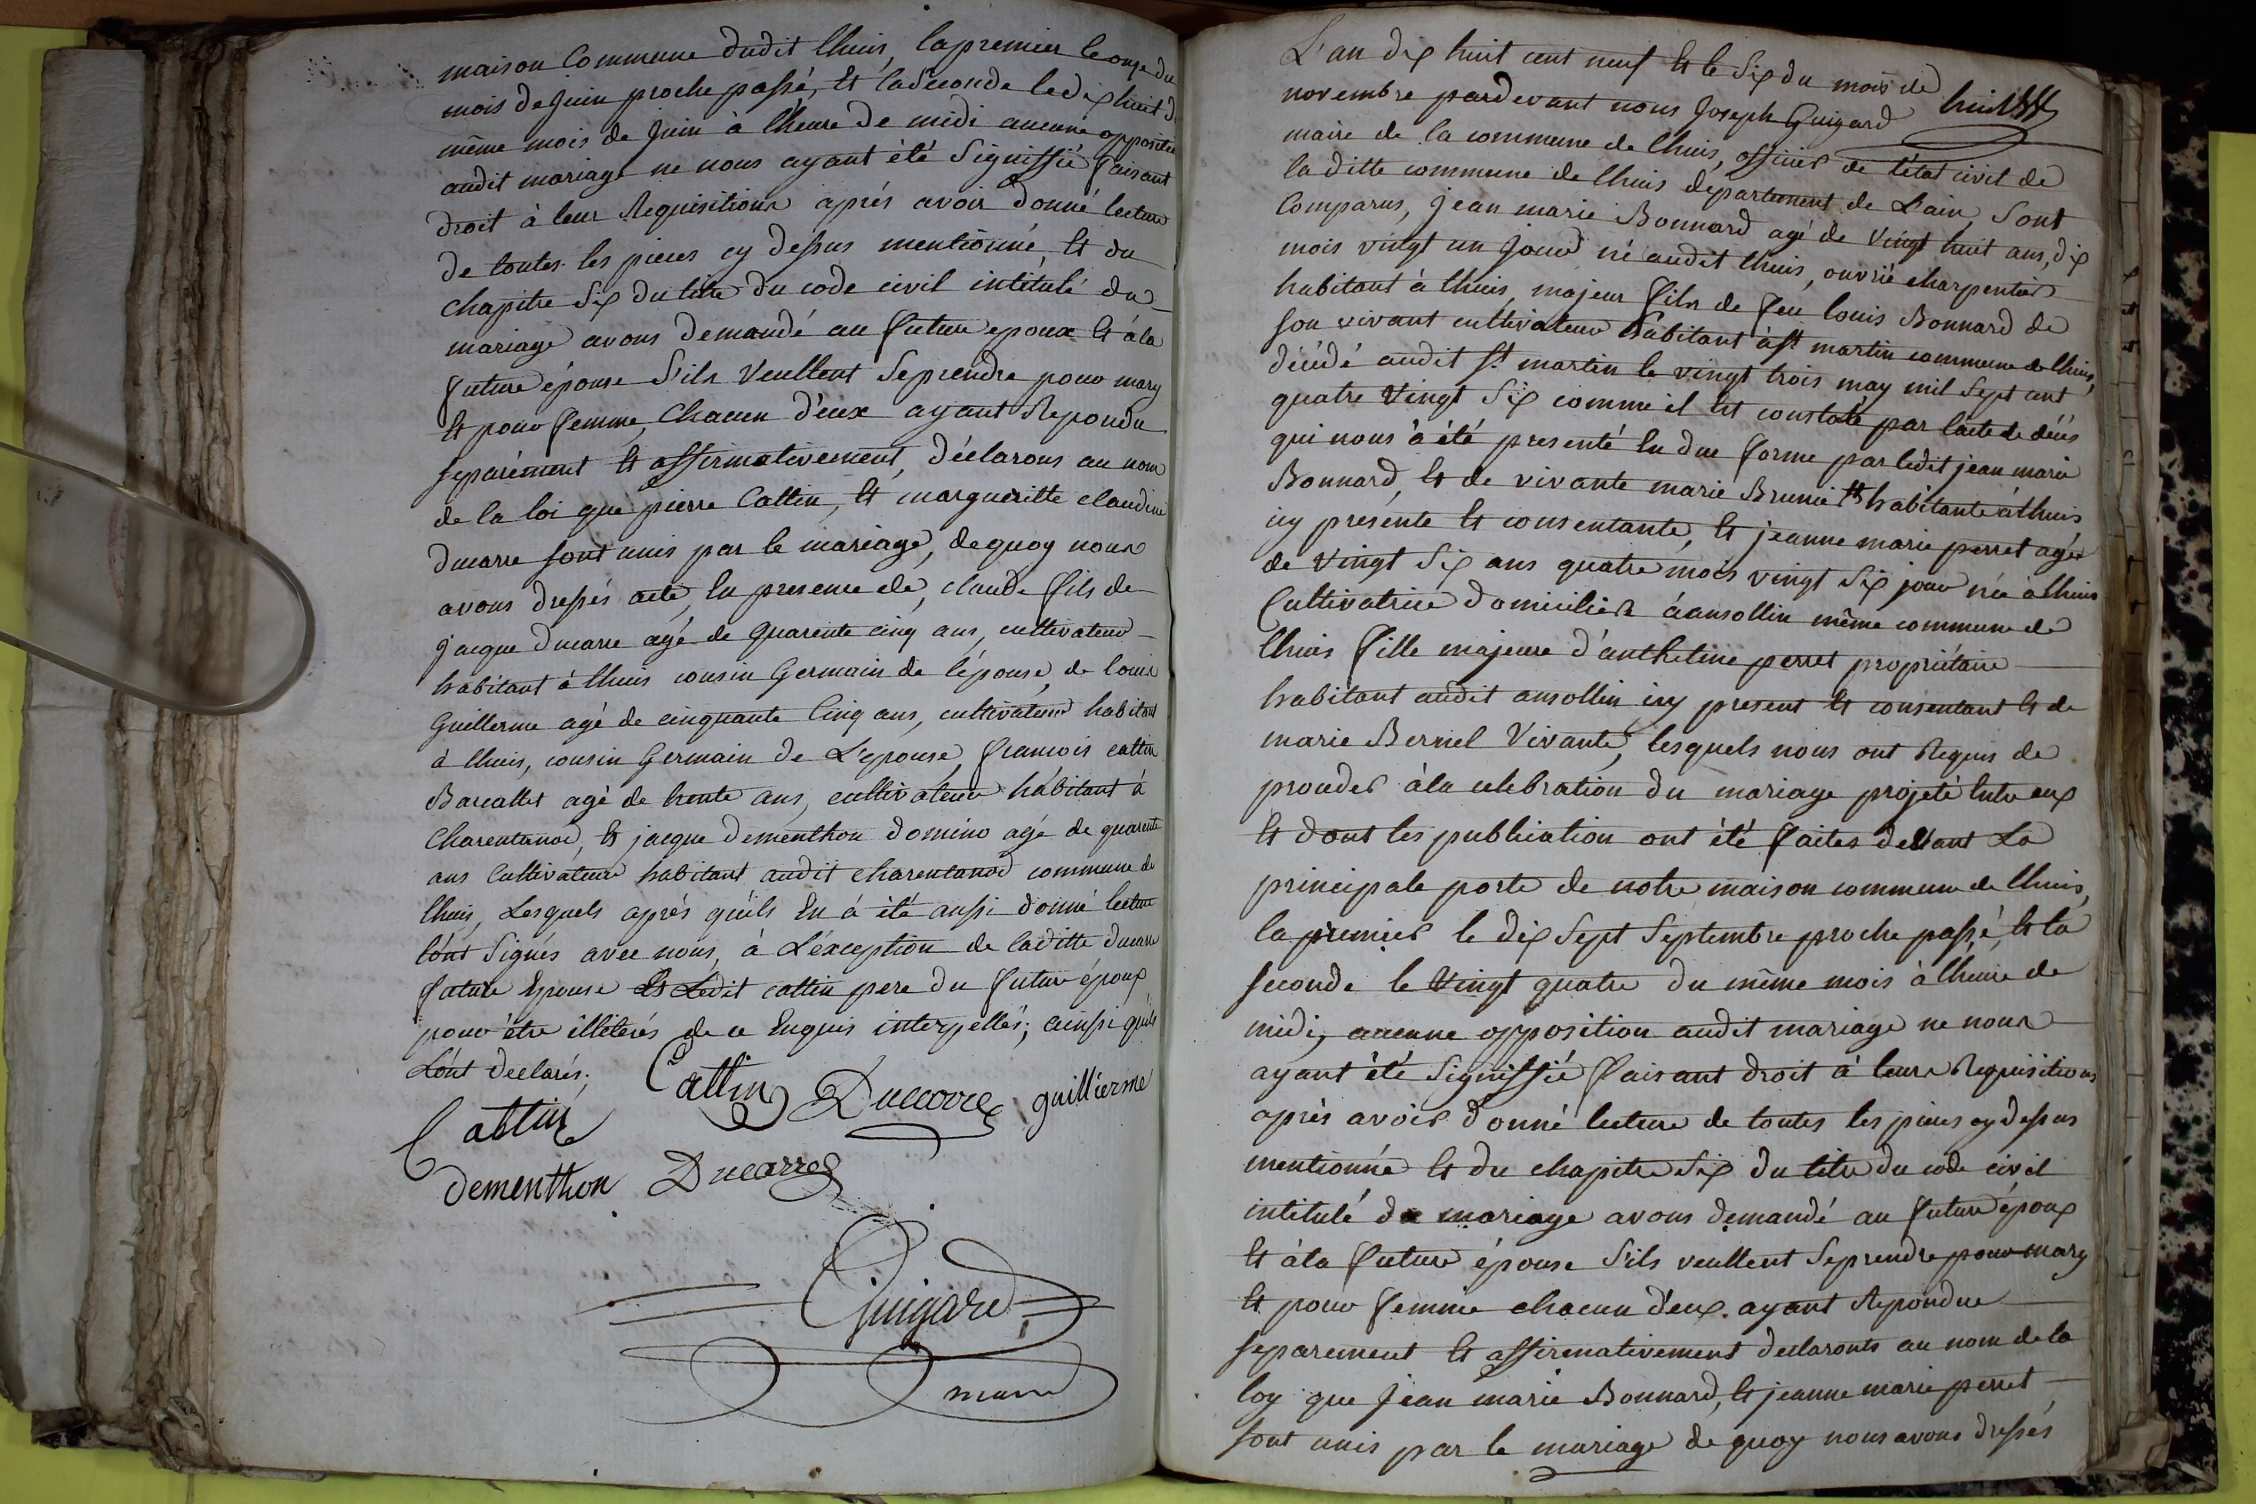 maison Commune dudit lhuis, la premier le onze du
mois de juin proche passé, et la seconde le dix huit d
même mois de juin à l'heure de midi aucune opposition
audit mariage ne nous ayant été signiffié faisant
droit à leur Requisitions aprés avoir donné lecture
de toutes les pieces cy dessus mentionné, et du
chapitre Six du titre du code civil intitulé du
mariage avons demandé au future epoux et à la
future épouse S'ils Veullent Seprendre pour mary
et pour femme, Chacun d'eux ayant Repondu
separément et affirmativement, déclarons au nom
de la loi que pierre Cattin, et margueritte claudine
ducarre sont unis par le mariage, de quoy nous
avons dressés acte, En presence de, claude fils de
jacque ducarre agé de quarente cinq ans, cultivateur
habitant à lhuis cousin Germain de l'épouse, de louis
Guillerme agé de cinquante Cinq ans, cultivateur habitant
à lhuis, cousin Germain de L'epouse, francois cattin
Barcallet agé de trente ans, cultivateur habitant à
Charentanod, et jacque dementhon domino agé de quarente
ans Cultivateur habitant audit charentanod commune de
lhuis, Lesquels après qu'ils En à été aussi donné lecture
l'ont Signés avec nous, à L'éxception de laditte ducarre
future Epouse et Ledit cattin pere du futur époux
pour être illétérés de ce Enquis interpellés; ainssi qu'ils
L'ont declarés.
Cattin Ducarre guillierme
Cattin
dementhon Ducarre
Guigard
maire
L'an dix huit cent neuf et le Six du mois de
novembre pardevant nous Joseph Guigard
maire de la commune de lhuis, officier de l'état civil de
la ditte commune de lhuis departement de L'ain, Sont
Comparus, jean marie Bonnard agé de Vingt huit ans, dix
mois vingt un jour né audit lhuis, ouvrié charpentier
habitant à lhuis, majeur fils de feu louis Bonnard de
son vivant cultivateur habitant à st martin commune de lhuis,
décédé audit st martin le vingt trois may mil Sept cent
quatre Vingt Six comme il Est constaté par l'acte de décés
qui nous à été presenté En due forme par ledit jean marie
Bonnard, et de vivante marie Brunie habitante à lhuis
icy presente et consentante, et jeanne marie perret agée
de Vingt Six ans quatre mois vingt Six jour née à lhuis
Cultivatrice domiciliée à ansollin même commune de
lhuis fille majeure d'anthelme perret propriétaire
habitant audit ansollin icy present et consentant et de
marie Berniel Vivante, lesquels nous ont Requis de
proceder à la celebration du mariage projeté Entre eux
et dont les publication ont été faites devant La
principale porte de notre maison commune de lhuis,
la premier le dix Sept Septembre proche passé, et la
seconde le Vingt quatre du même mois à lheure de
midi, aucune opposition audit mariage ne nous
ayant été Signiffié faisant droit à leurs Requisitions
aprés avoir donné lecture de toutes les pieces cy dessus
mentionnée et du chapitre Six du titre du code civil
intitulé du mariage avons demandé au future époux
et à la future épouse S'ils veullent Seprendre pour mary
et pour femme chacun d'eux ayant Repondue
separement et affirmativement declaronts au nom de la
loy que jean marie Bonnard, et jeanne marie perret
sont unis par le mariage de quoy nous avons dressés